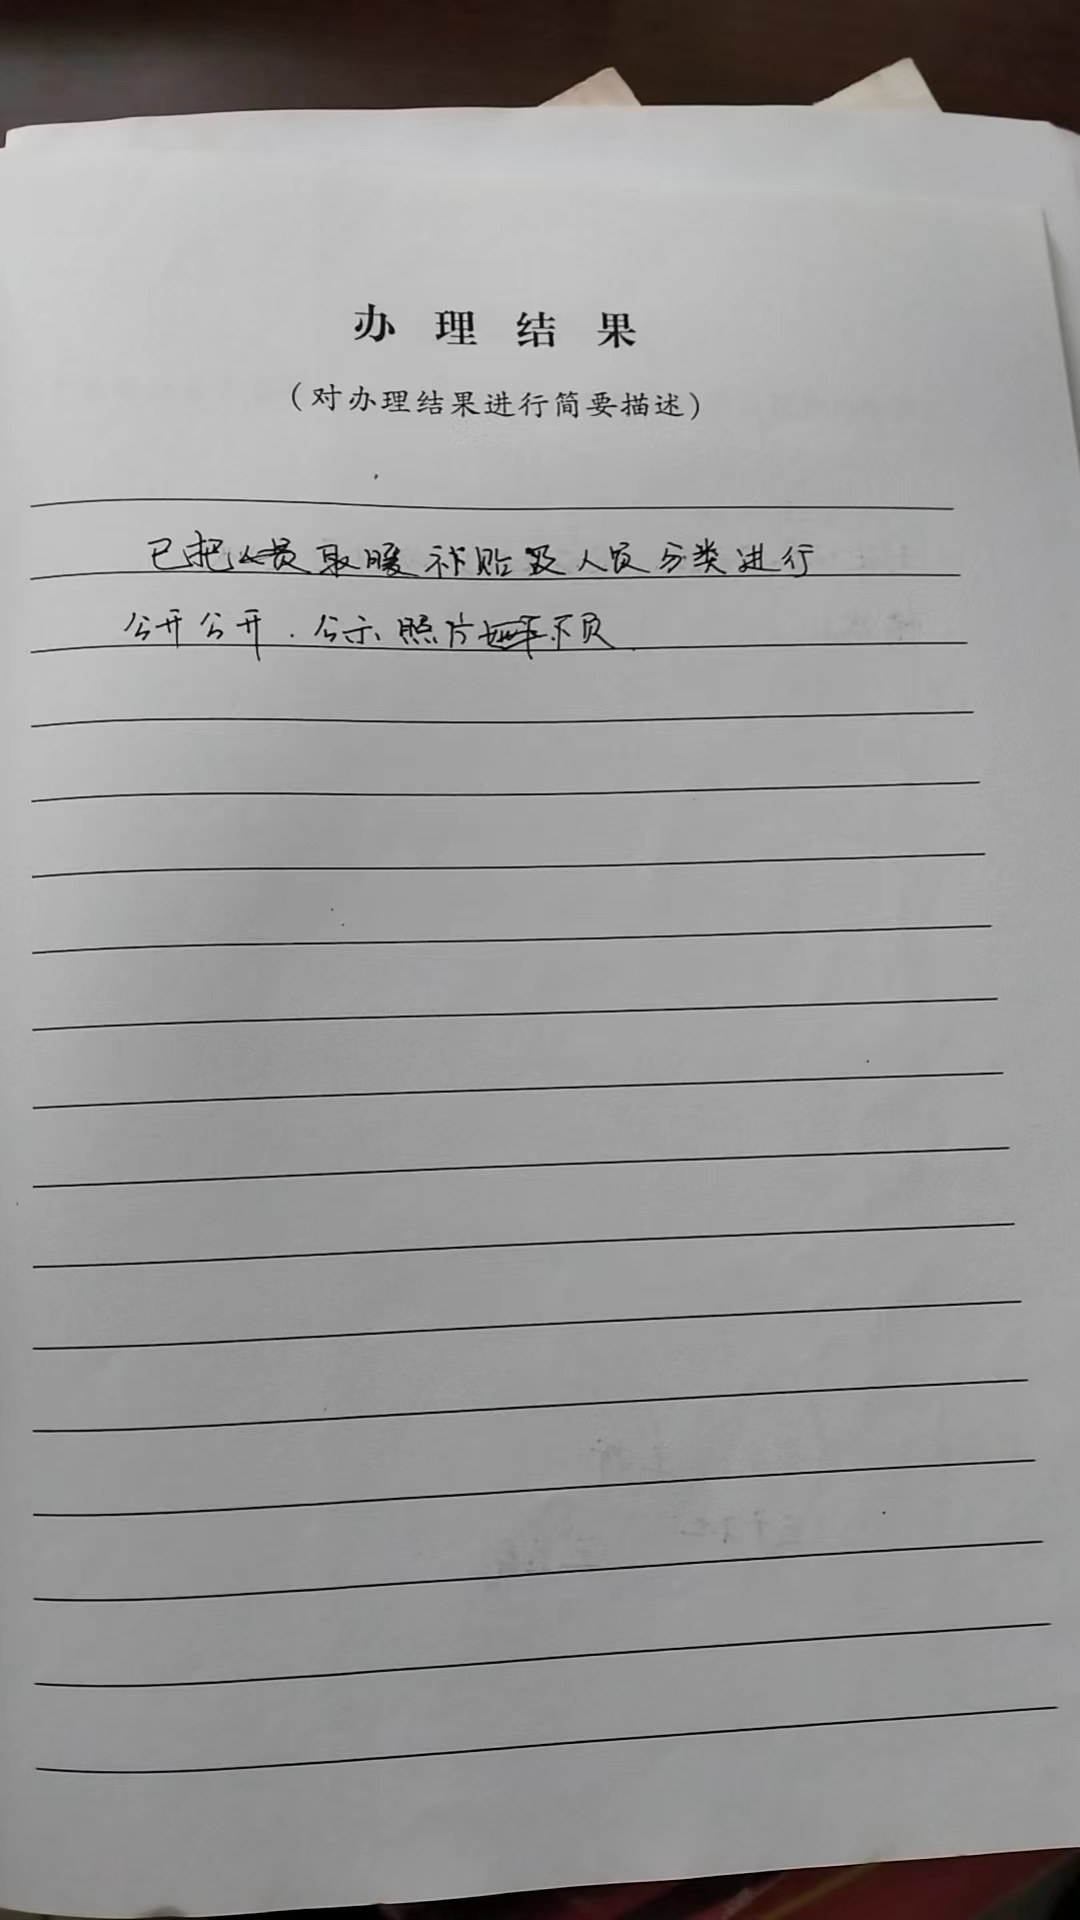 办理结果
（对办理结果进行简要描述）
已把人员取暖补贴及人员分类进行
公开公开．公示照片 下页